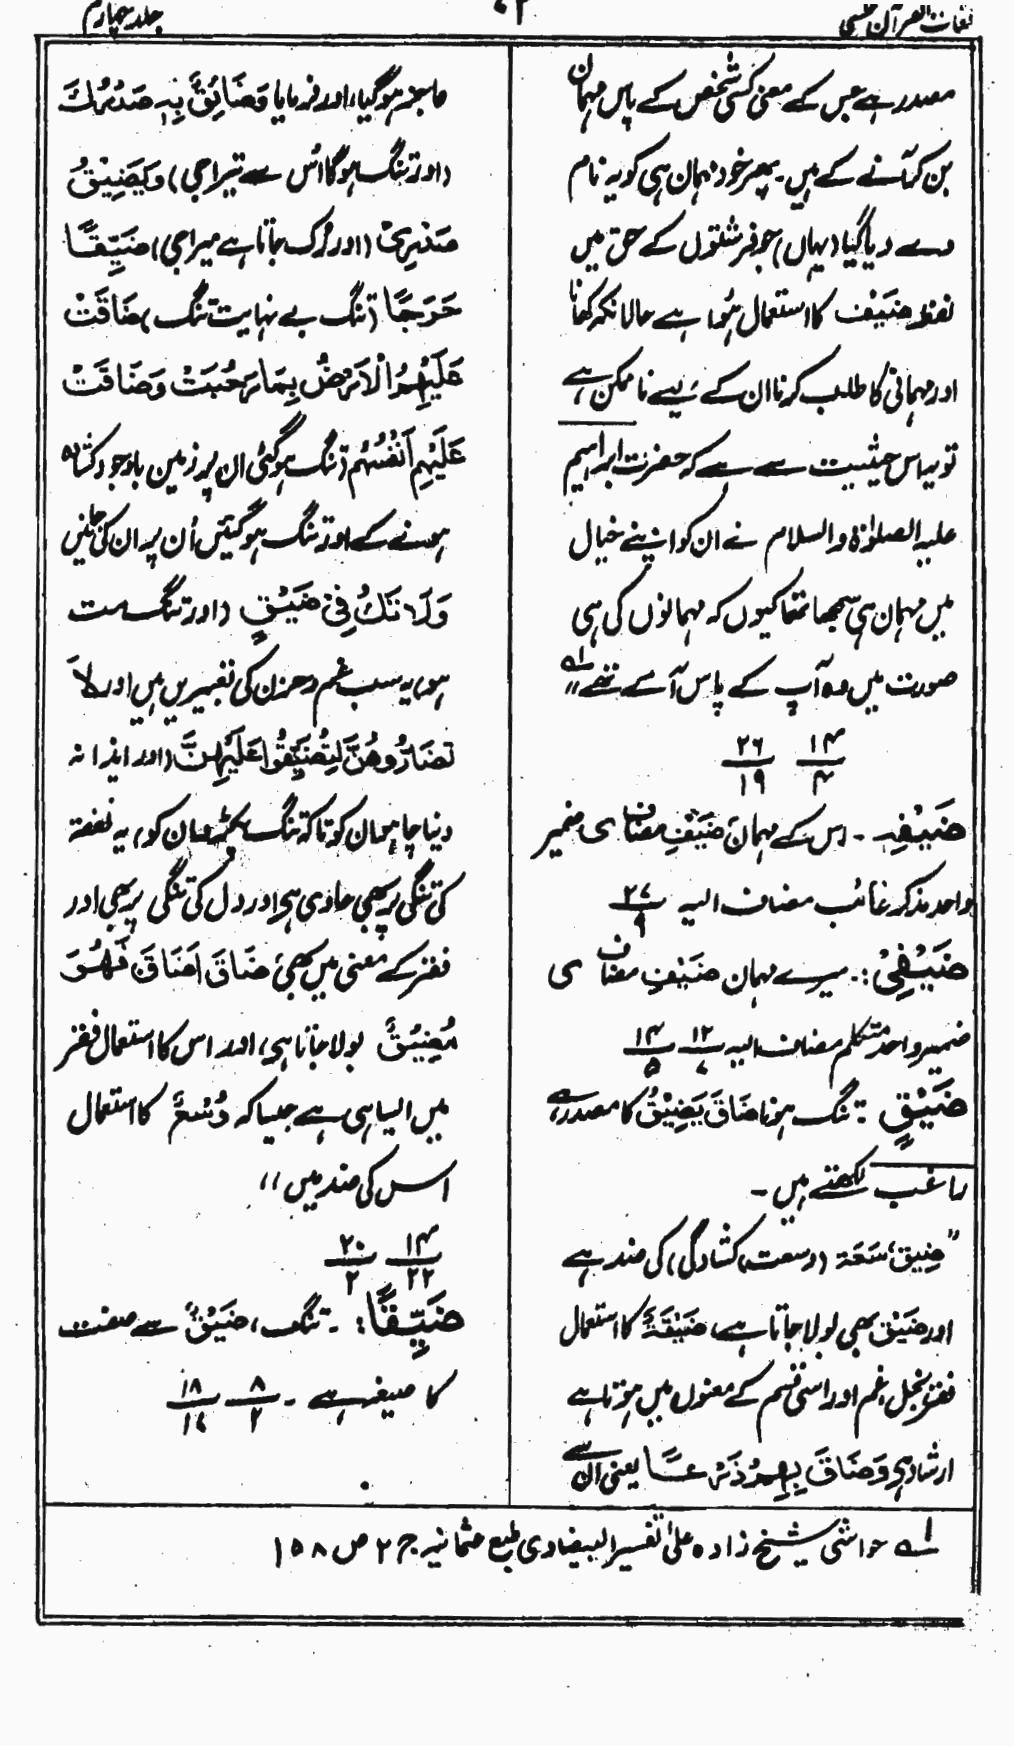 لغات القرآن جلد چہارم
مصدر ہے جس کے معنی کسی شخص کے پاس مہمان
بن کر آنے کے ہیں۔ پھر خود مہمان ہی کو یہ نام
دے دیا گیا (یہاں) جو فرشتوں کے حق میں
لفظ ضَیْف کا استعمال ہُوا ہے حالانکہ کھانا
اور مہمانی کا طلب کرنا ان کے لیے نا ممکن ہے
تو یہ اس حیثیت سے ہے کہ حضرت ابراہیم
علیہ الصلوٰۃ والسلام نے ان کو اپنے خیال
میں مہمان ہی سمجھا تھا کیوں کہ مہمانوں کی ہی
صورت میں وہ آپ کے پاس آئے تھے لہ "
۱۴ ۲۶
۴ ۱۹
ضَیْفِہ ۔ اس کے مہمان، ضَیْفِ مضاف ی ضمیر
واحد مذکر غائب مضاف الیہ ۲۷
۹
ضَیْفِیْ :۔ میرے مہمان ضَیْفِ مضاف ی
ضمیر واحد متکلم مضاف الیہ ۱۲ ۱۴
۷ ۵
ضَیْقٍ تنگ ہونا ضَاقَ یَضِیْقُ کا مصدر ہے،
راغب لکھتے ہیں ۔
" ضِیق، سَعَۃ (وسعت، کشادگی) کی ضد ہے
اور ضَیْق بھی بولا جاتا ہے، ضَیْقَۃٌ کا استعمال
فقر بخل غم اور اسی قسم کے معنوں میں ہوتا ہے
ارشاد ہے وَضَاقَ بِهِمْ ذَرْعًا یعنی ان سے
عاجز ہو گیا، اور فرمایا وَضَائِقٌ بِهٖ صَدْرُكَ
(اور تنگ ہوگا اُس سے تیرا جی) وَيَضِيْقُ
صَدْرِىْ (اور رُک جاتا ہے میرا جی) ضَيِّقًا
حَرَجًا (تنگ بے نہایت تنگ) ضَاقَتْ
عَلَيْهِمُ الْاَرْضُ بِمَا رَحُبَتْ وَضَاقَتْ
عَلَيْهِمْ اَنْفُسُهُمْ (تنگ ہو گئی ان پر زمین باوجود کشادہ
ہونے کے اور تنگ ہو گئیں اُن پر ان کی جانیں
وَلَا تَكُ فِىْ ضَيْقٍ (اور تنگ مت
ہو، یہ سب غم و حزن کی تعبیریں ہیں اور لَا
تُضَارُّوْهُنَّ لِتُضَيِّقُوْا عَلَيْهِنَّ (اور ایذا نہ
دینا چاہو ان کو تاکہ تنگ پکڑو ان کو) یہ نفقہ
کی تنگی پر بھی حاوی ہے اور دل کی تنگی پر بھی اور
فقر کے معنی میں بھی ضَاقَ اَضَاقَ فَهُوَ
مُضِيْقٌ بولا جاتا ہے، اور اس کا استعمال فقر
میں ایسا ہی ہے جیسا کہ وُسْعٌ کا استعمال
اس کی ضد میں "
۱۴ ۲۰
۲۲ ۲
ضَیِّقًا :۔ تنگ، ضَیْقٌ سے صفت
کا صیغہ ہے ۔ ۸ ۱۸
۲ ۱۷
لہ حواشی شیخ زادہ علیٰ تفسیر البیضاوی طبع عثمانیہ ج ۲ ص ۱۵۸